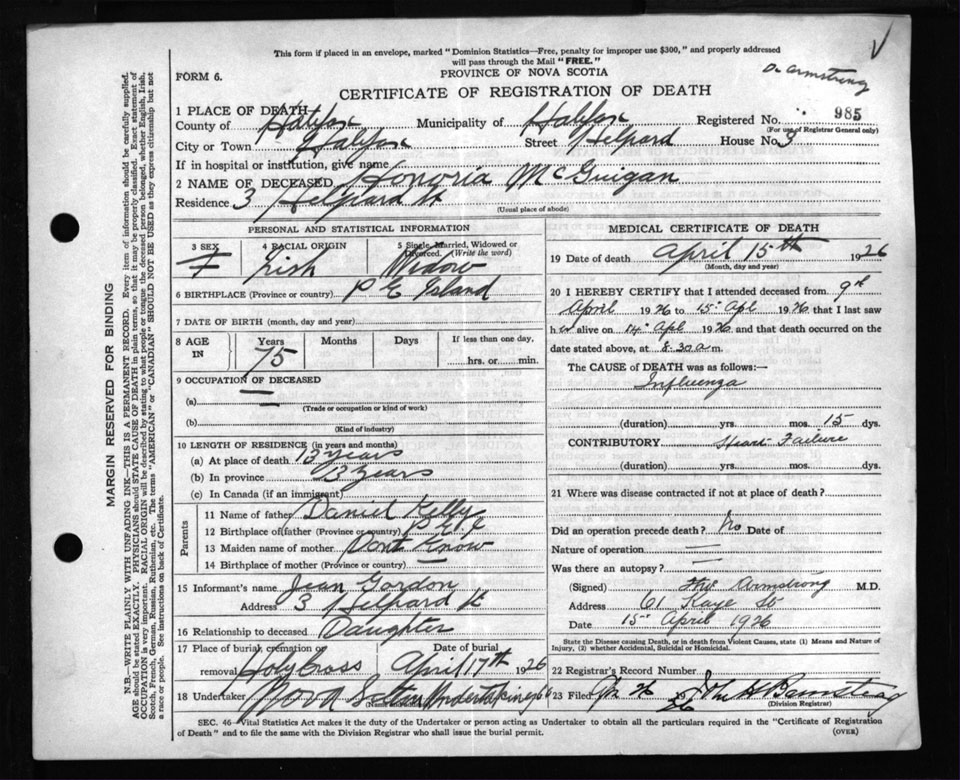 This form if placed in an envelope, marked "Dominion Statistics—Free, penalty for improper use $300," and properly addressed
will pass through the Mail "FREE."
PROVINCE OF NOVA SCOTIA
Dr Armstrong
FORM 6.
CERTIFICATE OF REGISTRATION OF DEATH
985
1 PLACE OF DEATH
County of Halifax Municipality of Halifax Registered No.
(For use of Registrar General only)
City or Town Halifax Street House No. 3
If in hospital or institution, give name
2 NAME OF DECEASED Honoria McGuigan
Residence 3
(Usual place of abode)
PERSONAL AND STATISTICAL INFORMATION
3 SEX 4 RACIAL ORIGIN 5 Single, Married, Widowed or Divorced. (Write the word)
F Irish Widow
6 BIRTHPLACE (Province or country) P E Island
7 DATE OF BIRTH (month, day and year)
8 AGE IN Years Months Days If less than one day,
75 hrs. or min.
9 OCCUPATION OF DECEASED
(a)
(Trade or occupation or kind of work)
(b)
(Kind of industry)
10 LENGTH OF RESIDENCE (in years and months)
(a) At place of death 13 years
(b) In province 13 years
(c) In Canada (if an immigrant)
Parents
11 Name of father Daniel Kelly
12 Birthplace of father (Province or country) P.E.I
13 Maiden name of mother Dont Know
14 Birthplace of mother (Province or country) —
15 Informant's name Jean Gordon
Address 3
16 Relationship to deceased Daughter
17 Place of burial, cremation or removal Holy Cross Date of burial April 17th 1926
18 Undertaker
(Name and address)
MEDICAL CERTIFICATE OF DEATH
19 Date of death April 15th 1926
(Month, day and year)
20 I HEREBY CERTIFY that I attended deceased from 9th
April 1926 to 15 Apl 1926 that I last saw
her alive on 14 Apl 1926 and that death occurred on the
date stated above, at 8.30 a m.
The CAUSE of DEATH was as follows:—
Influenza
(duration) yrs. mos. 15 dys.
CONTRIBUTORY Heart Failure
(duration) yrs. mos. dys.
21 Where was disease contracted if not at place of death?
Did an operation precede death? No Date of
Nature of operation —
Was there an autopsy? —
(Signed) Armstrong M.D.
Address 61 Kaye St
Date 15 April 1926
State the Disease causing Death, or in death from Violent Causes, state (1) Means and Nature of
Injury, and (2) whether Accidental, Suicidal or Homicidal.
22 Registrar's Record Number
23 Filed
(Division Registrar)
SEC. 46—Vital Statistics Act makes it the duty of the Undertaker or person acting as Undertaker to obtain all the particulars required in the "Certificate of Registration
of Death" and to file the same with the Division Registrar who shall issue the burial permit.
(OVER)
MARGIN RESERVED FOR BINDING
N.B.—WRITE PLAINLY WITH UNFADING INK—THIS IS A PERMANENT RECORD. Every item of information should be carefully supplied.
AGE should be stated EXACTLY. PHYSICIANS should STATE CAUSE OF DEATH in plain terms, so that it may be properly classified. Exact statement of
OCCUPATION is very important. RACIAL ORIGIN will be described by stating to what people or tongue the deceased person belonged, whether English, Irish,
Scotch, French, German, Russian, Ruthenian, etc. The terms "AMERICAN" or "CANADIAN" SHOULD NOT BE USED as they express citizenship but not
a race or people. See instructions on back of Certificate.